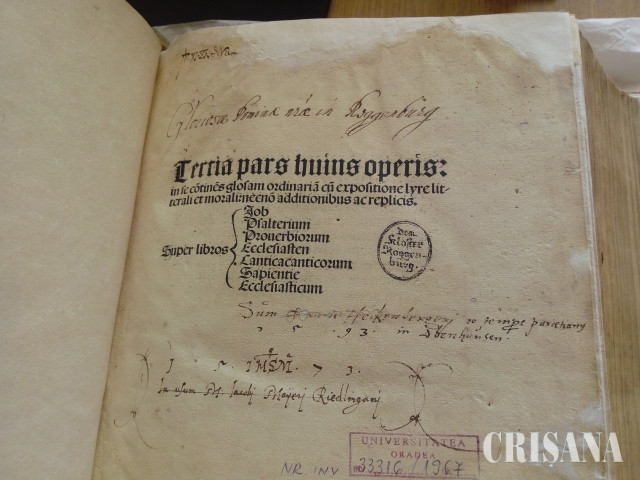 Gloriosæ Dominæ nræ in Roggenburg
Tertia pars huius operis:
in se cõtinẽs glosam ordinariã cũ expositione lyre lit-
terali et morali: necnõ additionibus ac replicis.
Super libros
Job
Psalterium
Prouerbiorum
Ecclesiasten
Canticacanticorum
Sapientie
Ecclesiasticum
Dem
Kloster
Roggen-
burg.
Sum pro tempe parochany
2 5 . 9 3 . in Ebenhausen.
1 . 5 . 7 3 .
In usum Iacobi Mayeri Riedlingani
UNIVERSITATEA
ORADEA
33316/1967
NR INV
CRIȘANA